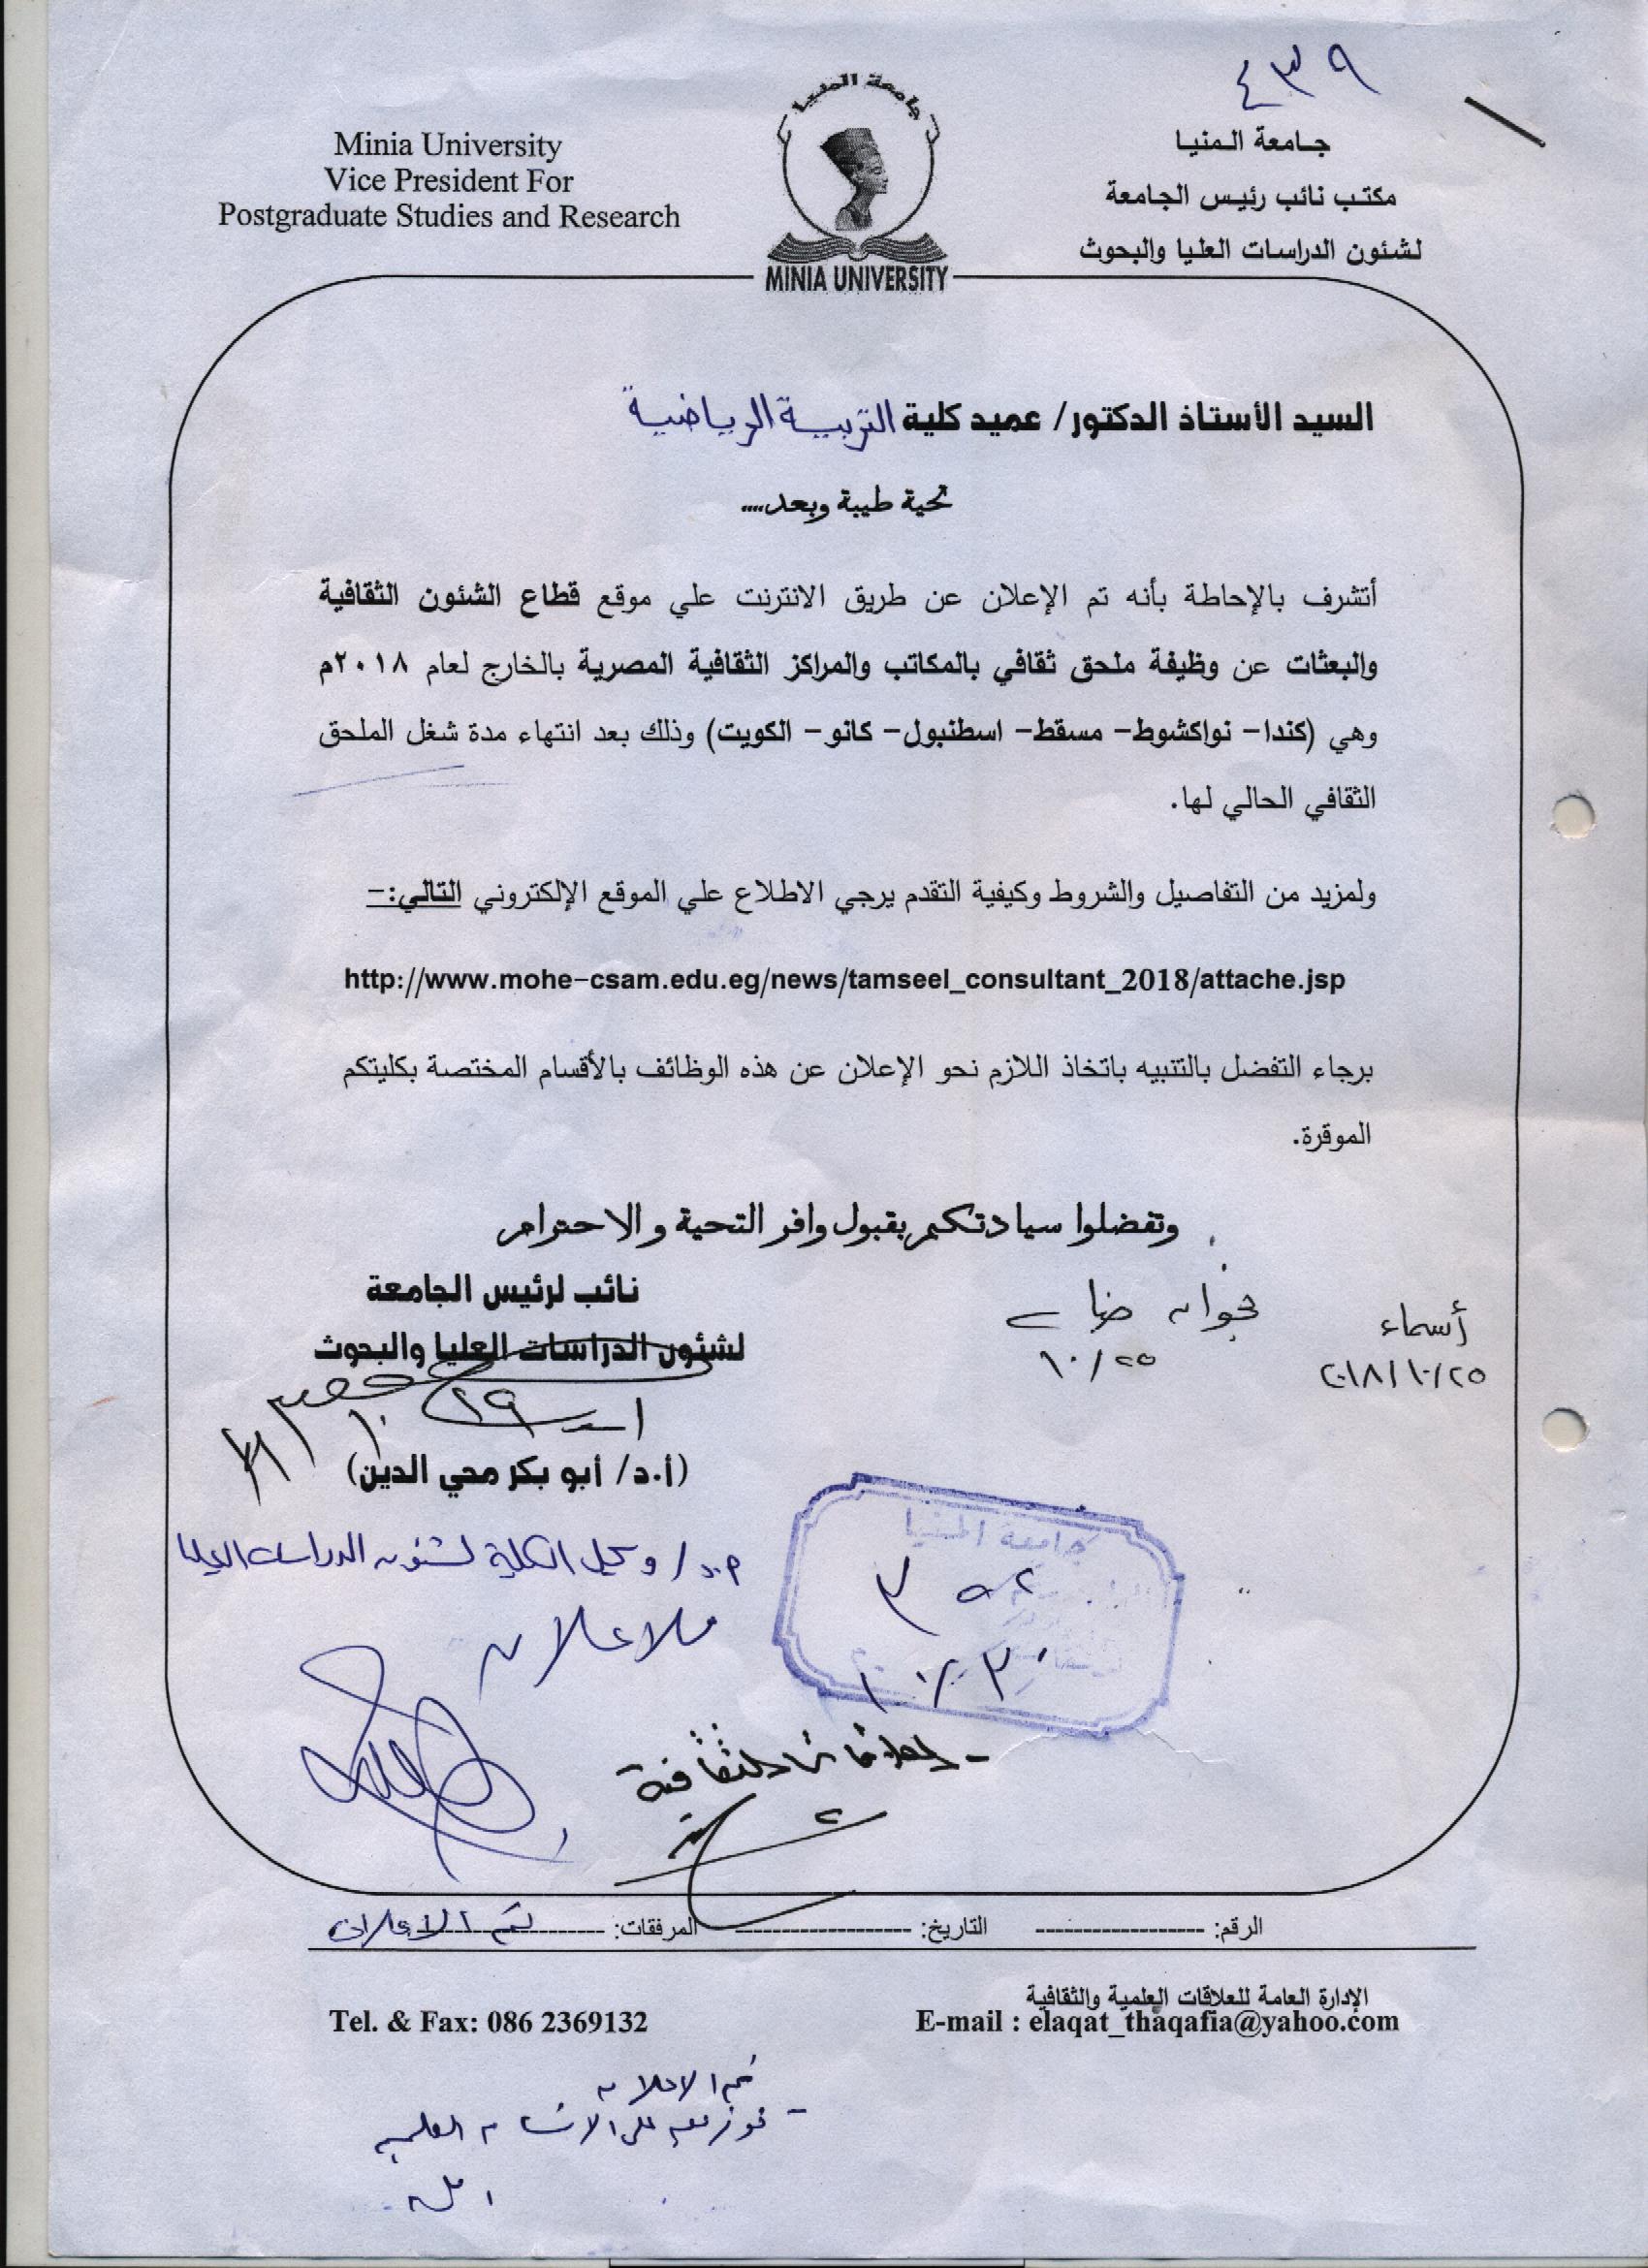 ٤٣٩
جامعة المنيا
Minia University
Vice President For
Postgraduate Studies and Research
جامعة المنيا
مكتب نائب رئيس الجامعة
لشئون الدراسات العليا والبحوث
MINIA UNIVERSITY
السيد الأستاذ الدكتور/ عميد كلية التربية الرياضية
تحية طيبة وبعد....
أتشرف بالإحاطة بأنه تم الإعلان عن طريق الانترنت علي موقع قطاع الشئون الثقافية
والبعثات عن وظيفة ملحق ثقافي بالمكاتب والمراكز الثقافية المصرية بالخارج لعام ٢٠١٨م
وهي (كندا- نواكشوط- مسقط- اسطنبول- كانو- الكويت) وذلك بعد انتهاء مدة شغل الملحق
الثقافي الحالي لها.
ولمزيد من التفاصيل والشروط وكيفية التقدم يرجي الاطلاع علي الموقع الإلكتروني التالي:-
http://www.mohe-csam.edu.eg/news/tamseel_consultant_2018/attache.jsp
برجاء التفضل بالتنبيه باتخاذ اللازم نحو الإعلان عن هذه الوظائف بالأقسام المختصة بكليتكم
الموقرة.
وتفضلوا سيادتكم بقبول وافر التحية والاحترام
نائب لرئيس الجامعة
لشئون الدراسات العليا والبحوث
أسماء
٢٠١٨/١٠/٢٥
١٠/٢٥
(أ.د/ أبو بكر محي الدين)
أ.د/ وكيل الكلية لشئون الدراسات العليا
للاعلان
جامعة المنيا
١٠/٣٠
- العلاقات الثقافية
الرقم: ------------------ التاريخ: ------------------ المرفقات: ------------------
تم الاعلان
الإدارة العامة للعلاقات العلمية والثقافية
Tel. & Fax: 086 2369132
E-mail : elaqat_thaqafia@yahoo.com
تم الاعلان
على الاقسام العلمية